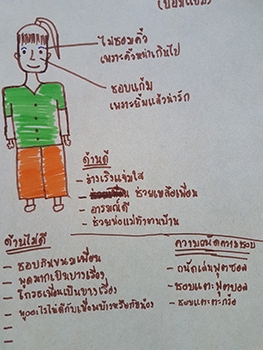 ไม่ชอบคิ้ว
เพราะคิ้วหนาเกินไป
ชอบแก้ม
เพราะยิ้มแล้วน่ารัก
ด้านดี
- ร่าเริงแจ่มใส
- ช่วยเหลือเพื่อน
- อารมณ์ดี
- ช่วยพ่อแม่ทำงานบ้าน
ด้านไม่ดี
- ชอบกินขนมเพื่อน
- พูดมากเป็นบางเรื่อง
- โกรธเพื่อนเป็นบางเรื่อง
- พูดอะไรไม่ดีกับเพื่อน
ความถนัดความชอบ
- ถนัดเล่นฟุตซอล
- ชอบเตะฟุตบอล
- ชอบเตะตะกร้อ